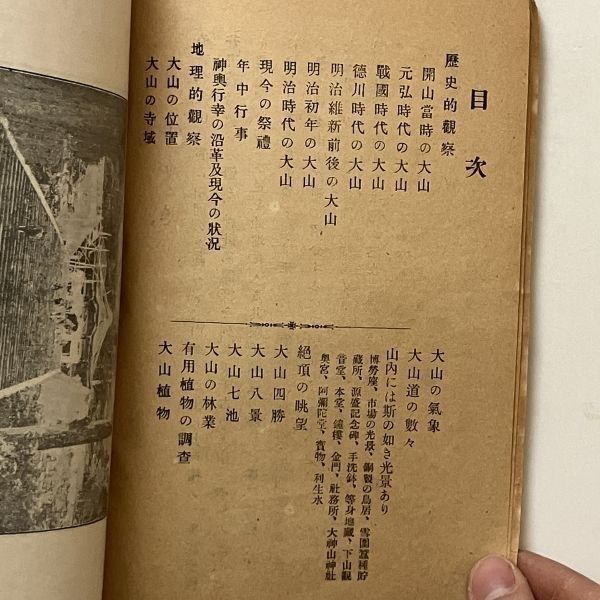 目次
歷史的觀察
開山當時の大山
元弘時代の大山
戰國時代の大山
德川時代の大山
明治維新前後の大山
明治初年の大山
明治時代の大山
現今の祭禮
年中行事
神輿行幸の沿革及現今の狀況
地理的觀察
大山の位置
大山の寺域
大山の氣象
大山道の數々
山內には斯の如き光景あり
博勞座、市場の光景、銅製の鳥居、雪圍蠶種貯
藏所、源盛記念碑、手洗鉢、等身地藏、下山觀
音堂、本堂、鐘樓、金門、社務所、大神山神社
奧宮、阿彌陀堂、寳物、利生水
絕頂の眺望
大山四勝
大山八景
大山七池
大山の林業
有用植物の調查
大山植物